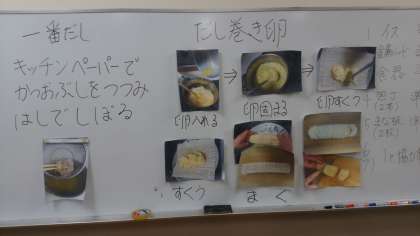 一番だし
キッチンペーパーで
かつおぶしをつつみ
はしでしぼる
だし巻き卵
卵入れる
卵固まる
卵すくう
すくう
まく
1 イス
鍋
食器
包丁
まな板